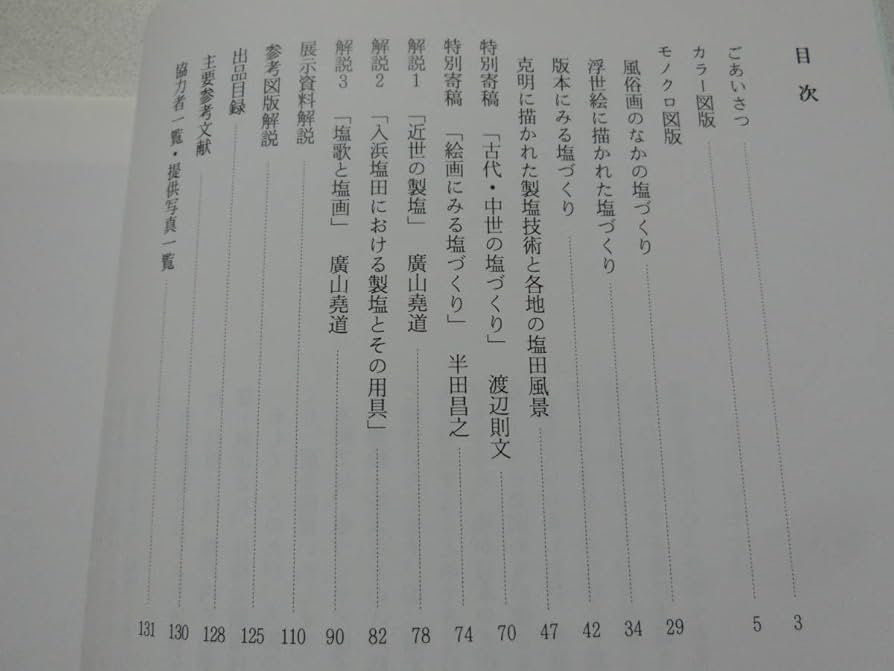 目次
ごあいさつ 3
カラー図版 5
モノクロ図版
風俗画のなかの塩づくり 29
浮世絵に描かれた塩づくり 34
版本にみる塩づくり 42
克明に描かれた製塩技術と各地の塩田風景 47
特別寄稿 「古代・中世の塩づくり」 渡辺則文 70
特別寄稿 「絵画にみる塩づくり」 半田昌之 74
解説1 「近世の製塩」 廣山堯道 78
解説2 「入浜塩田における製塩とその用具」 82
解説3 「塩歌と塩画」 廣山堯道 90
展示資料解説 110
参考図版解説 125
出品目録 128
主要参考文献 130
協力者一覧・提供写真一覧 131